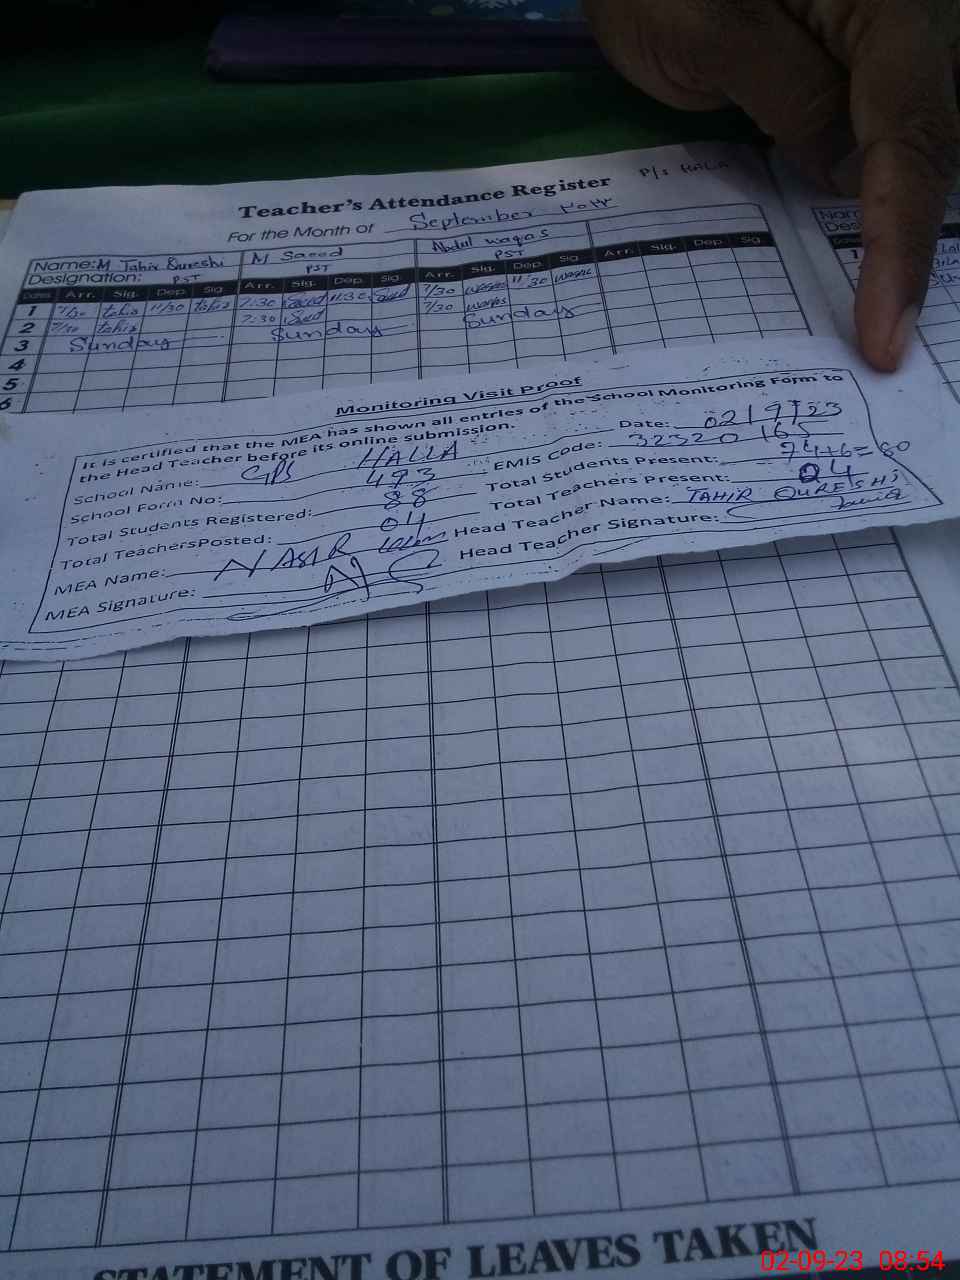 P/s HALA
Teacher's Attendance Register
For the Month of September ٢٠٢٣
Name: M Tahir Qureshi M Saeed Abdul waqas
Designation: PST PST PST
Dates Arr. Sig. Dep. Sig. Arr. Sig. Dep. Sig. Arr. Sig. Dep. Sig. Arr. Sig. Dep. Sig.
1 7/30 tahir 11/30 tahir 7:30 Saeed 11:30 Saeed 7/30 waqas 11/30 waqas
2 7/30 tahir 7:30 Saeed 7/30 waqas
3 Sunday Sunday Sunday
4
5
6
Monitoring Visit Proof
It is certified that the MEA has shown all entries of the School Monitoring Form to
the Head Teacher before its online submission.
Date: 02/9/23
School Name: GPS HALLA EMIS Code: 32320165
School Form No: 493 Total Students Present: 74+6=80
Total Students Registered: 88 Total Teachers Present: 04
Total TeachersPosted: 04 Head Teacher Name: TAHIR QURESHI
MEA Name: NASIR Head Teacher Signature:
MEA Signature:
STATEMENT OF LEAVES TAKEN
02-09-23 08:54